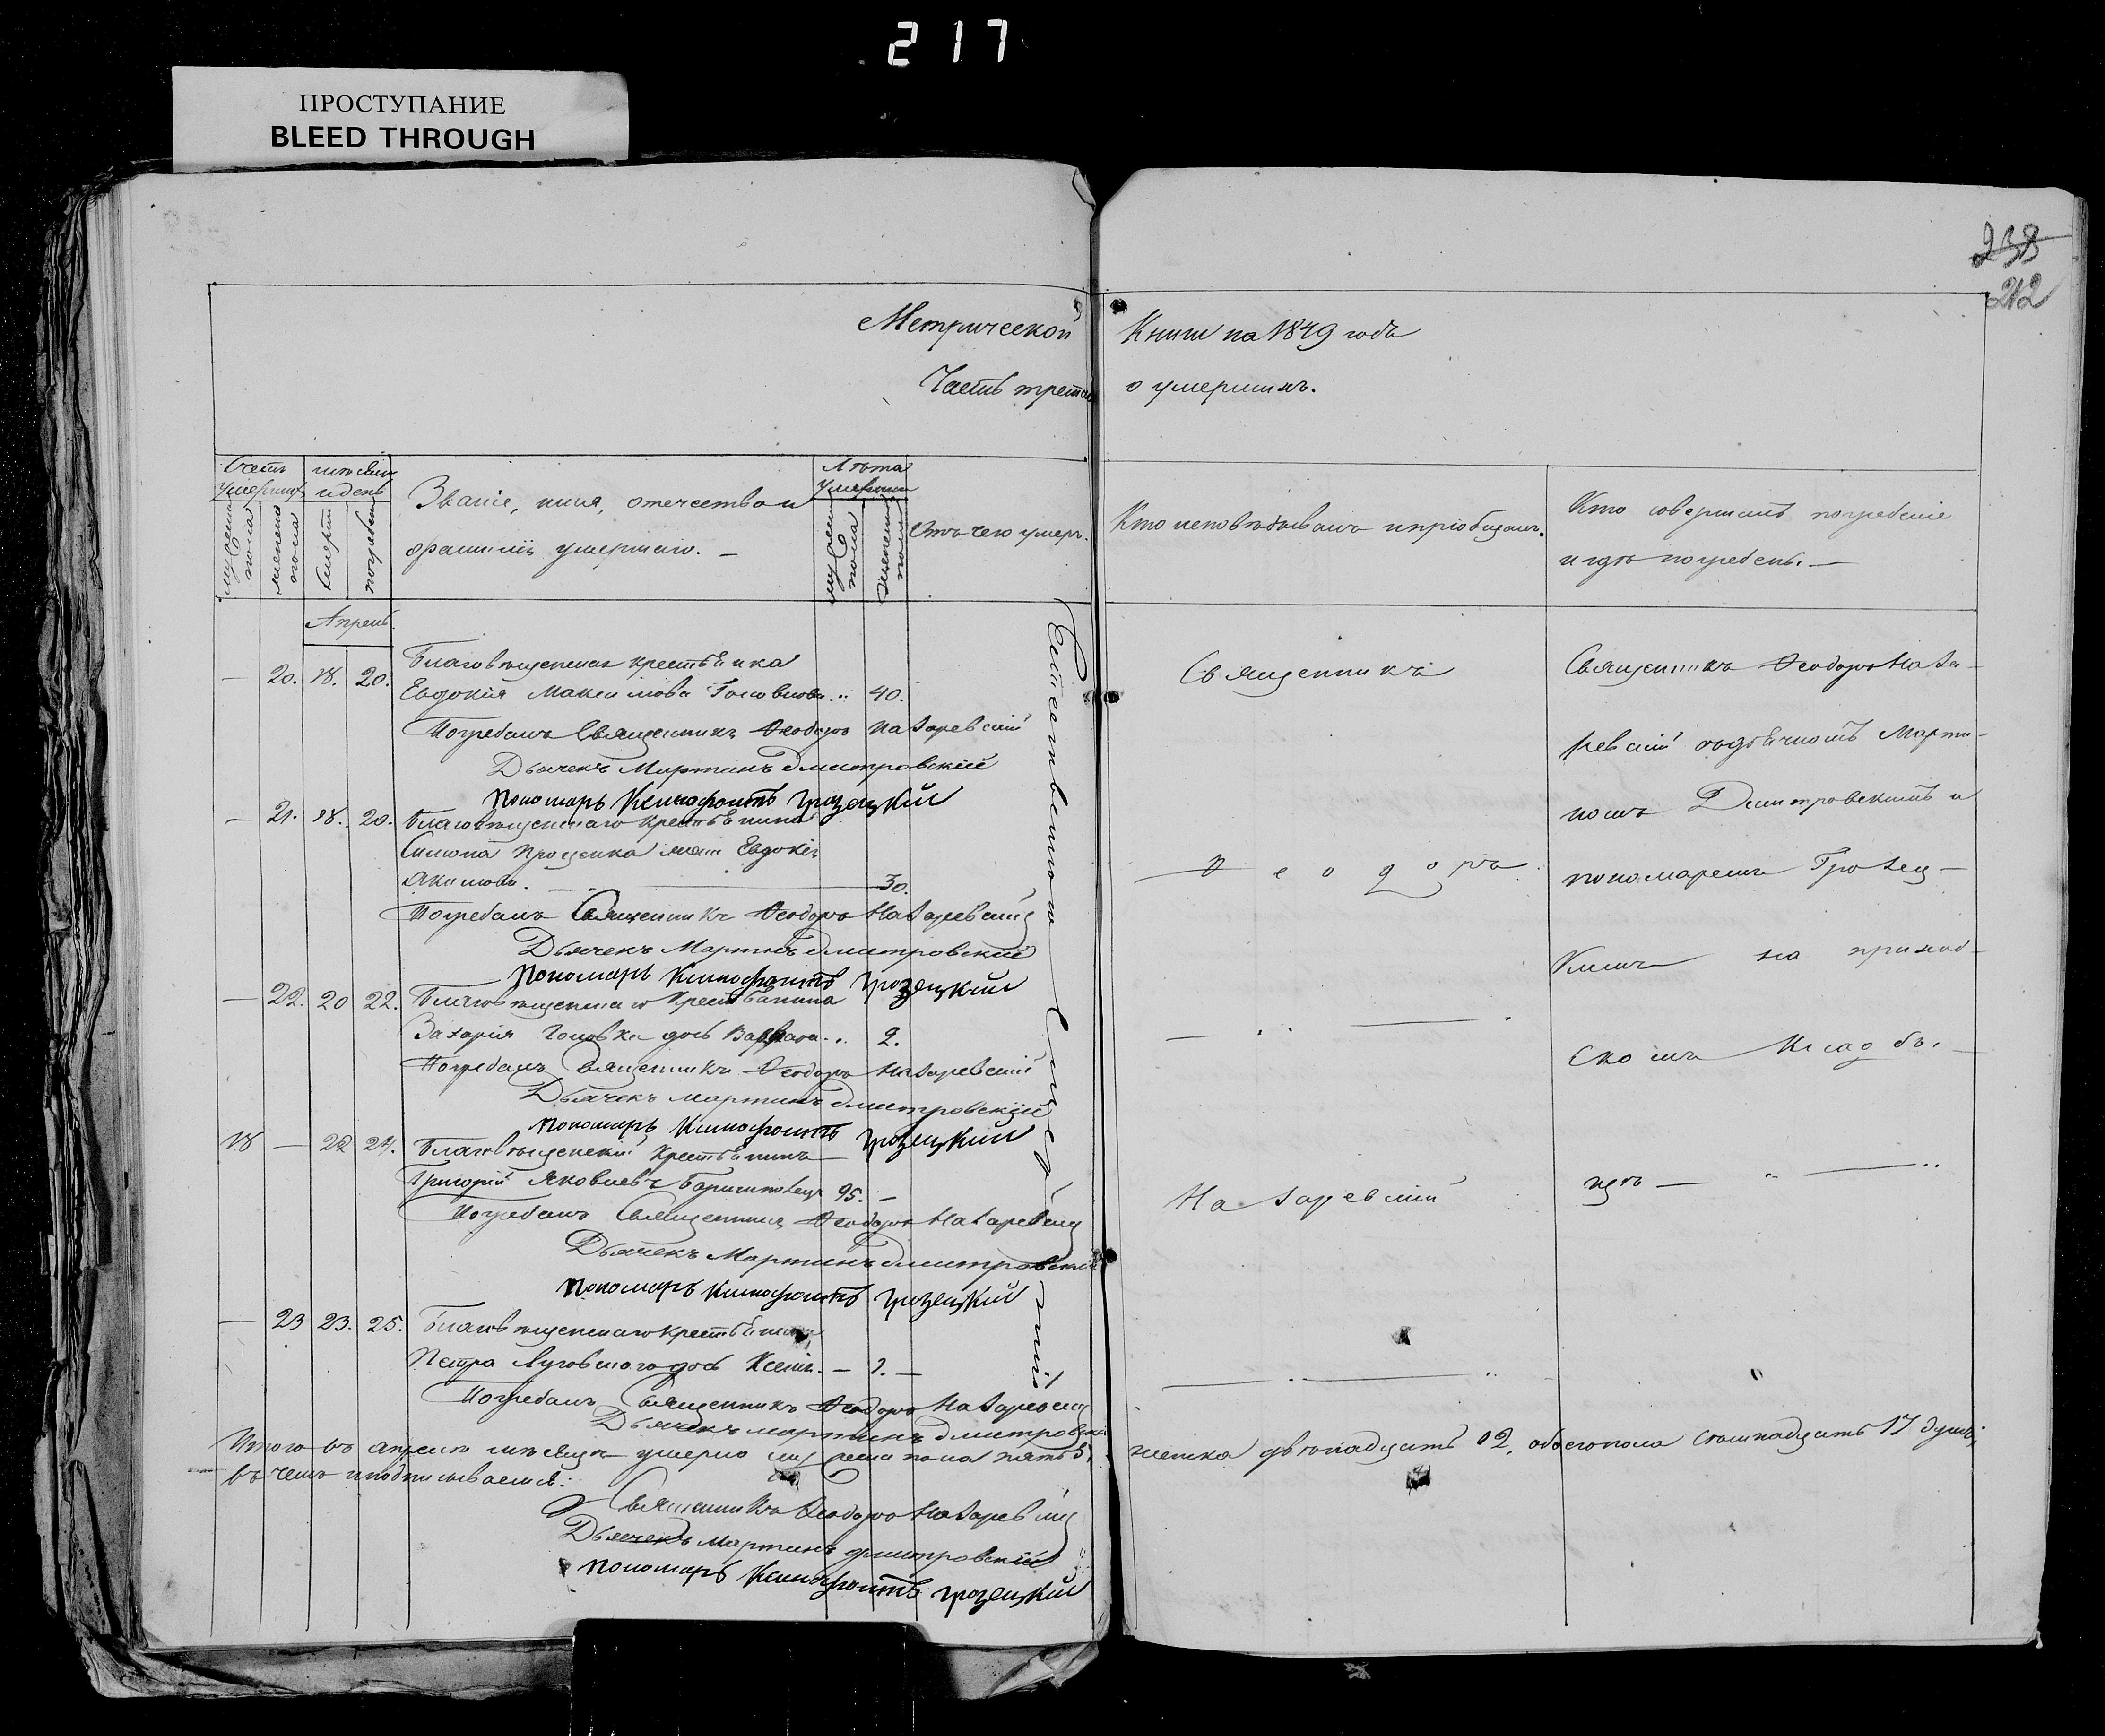 217
ПРОСТУПАНИЕ
BLEED THROUGH
238
212
Метрической Книги на 1849 годъ
Часть третая о умершихъ.
Счетъ умершихъ
мѣсяцъ и день
Званіе, имя, отечество и
фамилія умершаго.
Лѣта умершаго
Отъ чего умеръ.
Кто исповѣдывалъ и пріобщалъ.
Кто совершалъ погребеніе
и гдѣ погребенъ.
мужеска пола
женска пола
смерти
погребен
мужеска пола
женска пола
Апрель
— 20. 18. 20. Благовѣщенская крестьянка
Евдокія Максимова 40.
Погребалъ Священникъ Ѳеодоръ Назаревскій
Дьячекъ Мартинъ Дмитровскій
Пономарь Ксенофонтъ Грозецкій
— 21. 18. 20. Благовѣщенскаго крестьянина
Проценка Евдокія
Якимова. — 30.
Погребалъ Священникъ Ѳеодоръ Назаревскій
Дьячекъ Мартинъ Дмитровскій
Пономарь Ксенофонтъ Грозецкій
— 22. 20 22. Благовѣщенскаго крестьянина
Захарія Головка дочь Варвара 2.
Погребалъ Священникъ Ѳеодоръ Назаревскій
Дьячекъ Мартинъ Дмитровскій
Пономарь Ксенофонтъ Грозецкій
18 — 22 24. Благовѣщенскій крестьянинъ
Григорій Яковлевъ 95. —
Погребалъ Священникъ Ѳеодоръ Назаревскій
Дьячекъ Мартинъ Дмитровскій
Пономарь Ксенофонтъ Грозецкій
— 23 23. 25. Благовѣщенскаго крестьянина
Петра Луговскаго дочь Ксенія. —
Погребалъ Священникъ Ѳеодоръ Назаревскій
Дьячекъ Мартинъ Дмитровскій
Естественною Смертію
Священникъ
Ѳеодоръ
Назаревскій
Священникъ Ѳеодоръ Наза-
ревскій съ дьячкомъ Марти-
номъ Дмитровскимъ и
пономаремъ Грозец-
кимъ на приход-
скомъ кладби-
щѣ —
Итого въ апрелѣ мѣсяцѣ умерло мужеска пола пять 5, женска двѣнадцать 12, обоего пола семнадцать 17 душъ,
въ чемъ и подписываемся:
Священникъ Ѳеодоръ Назаревскій
Дьячекъ Мартинъ Дмитровскій
Пономарь Ксенофонтъ Грозецкій